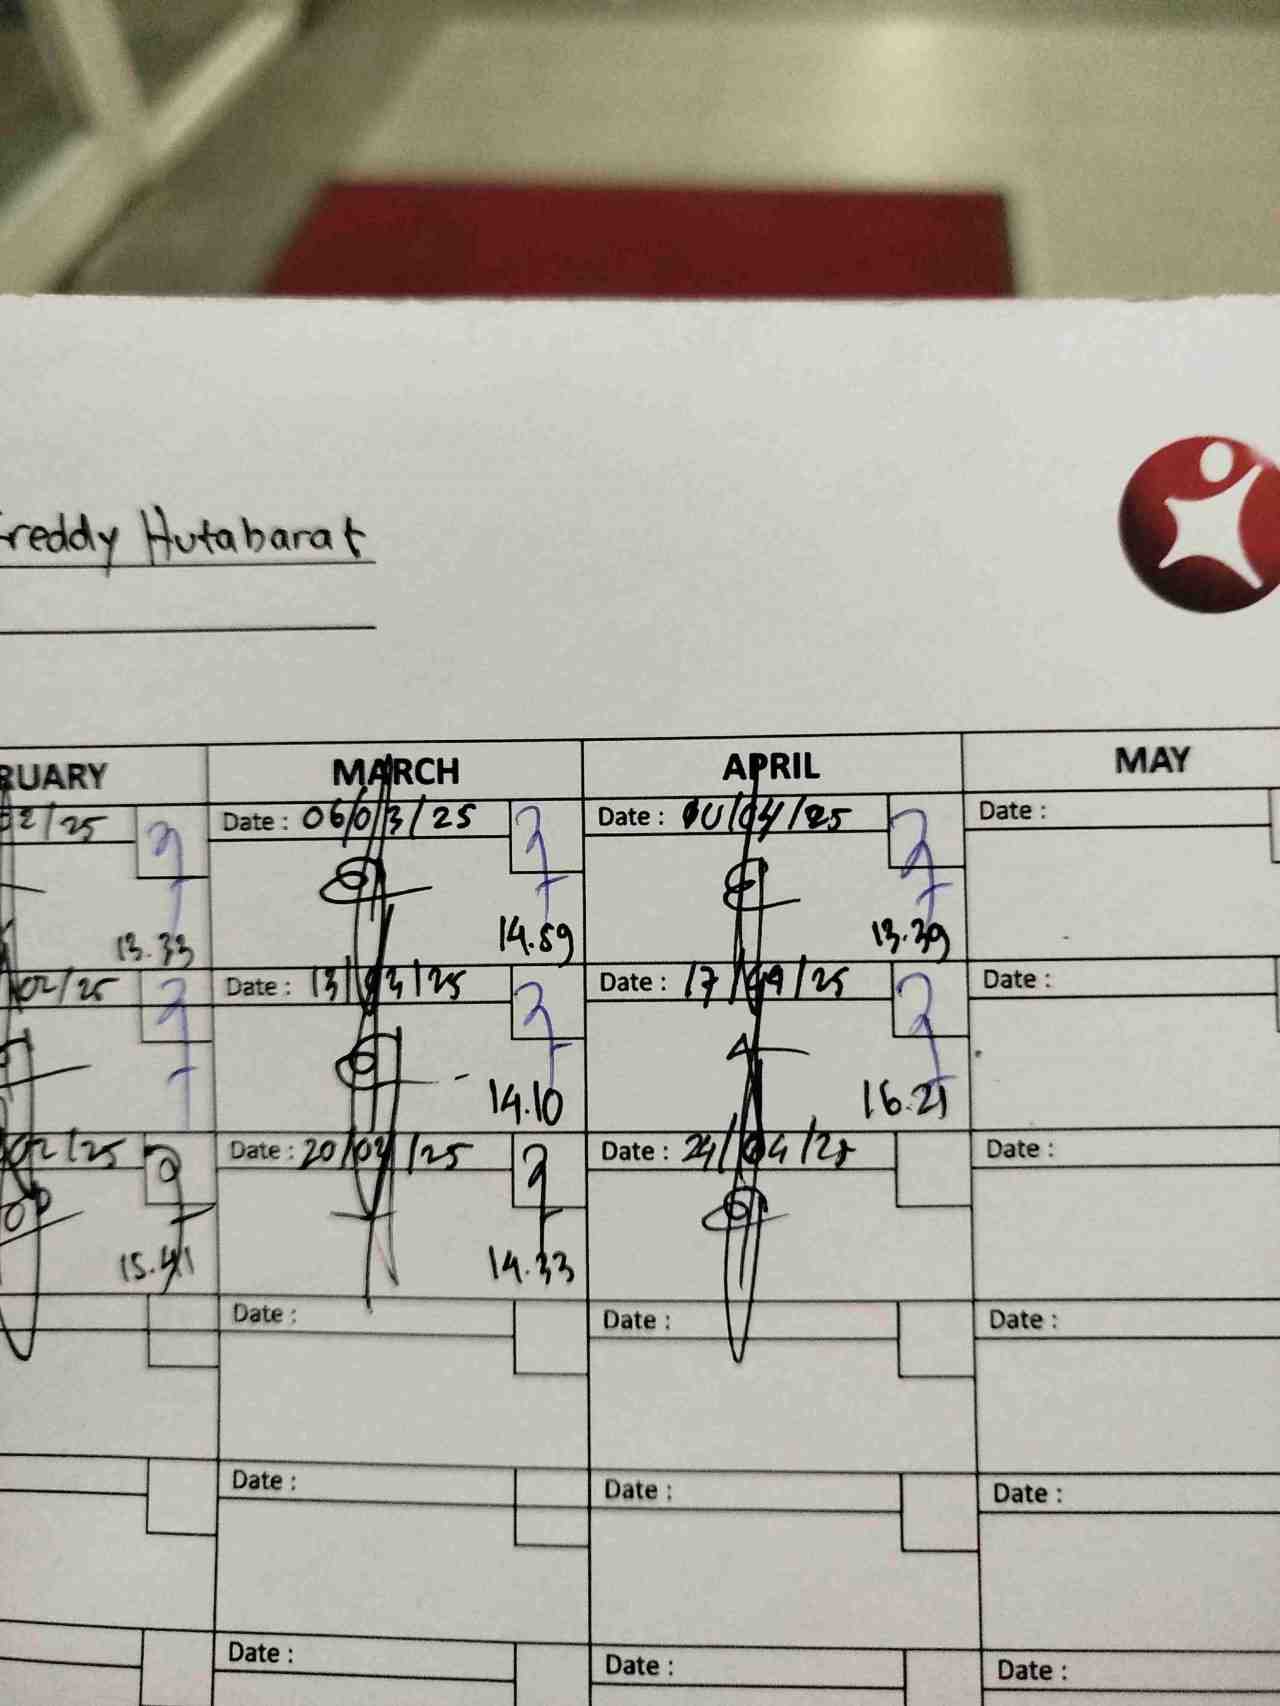 Freddy Hutabarat
RUARY MARCH APRIL MAY
02/25 Date : 06/03/25 Date : /04/25 Date :
13.33 14.59 13.39
02/25 Date : 13/03/25 Date : 17/04/25 Date :
14.10 16.21
02/25 Date : 20/03/25 Date : 24/04/25 Date :
15.41 14.33
Date : Date : Date :
Date : Date : Date :
Date : Date : Date :